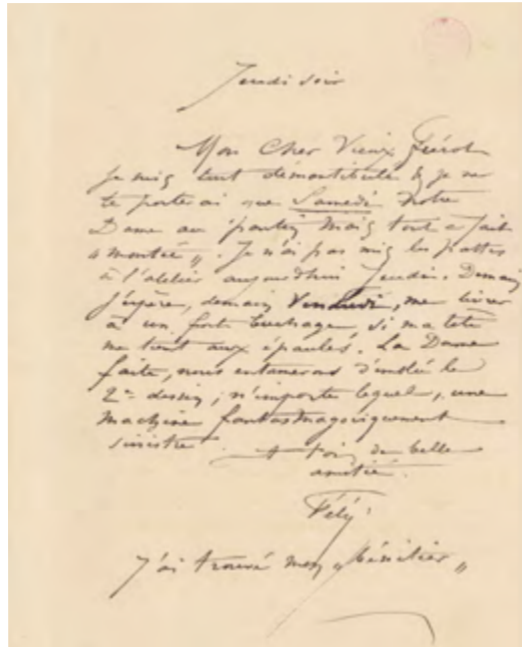 Jeudi soir
Mon Cher Vieux
Je suis tout démantibulé & je ne
te porterai que Samedi notre
Dame au pantin mais tout à fait
« montée ». Je n'ai pas mis les pattes
à l'atelier aujourd'hui Jeudi. Demain
j'espère, demain Vendredi, me livrer
à un fort bûchage, si ma tête
me tient aux épaules. La Dame
faite, nous entamerons d'emblée le
2e dessin ; n'importe lequel, une
machine fantasmagoriquement
sinistre.
A toi, de belle
amitié.
Fély.
J'ai trouvé mon « bénitier »